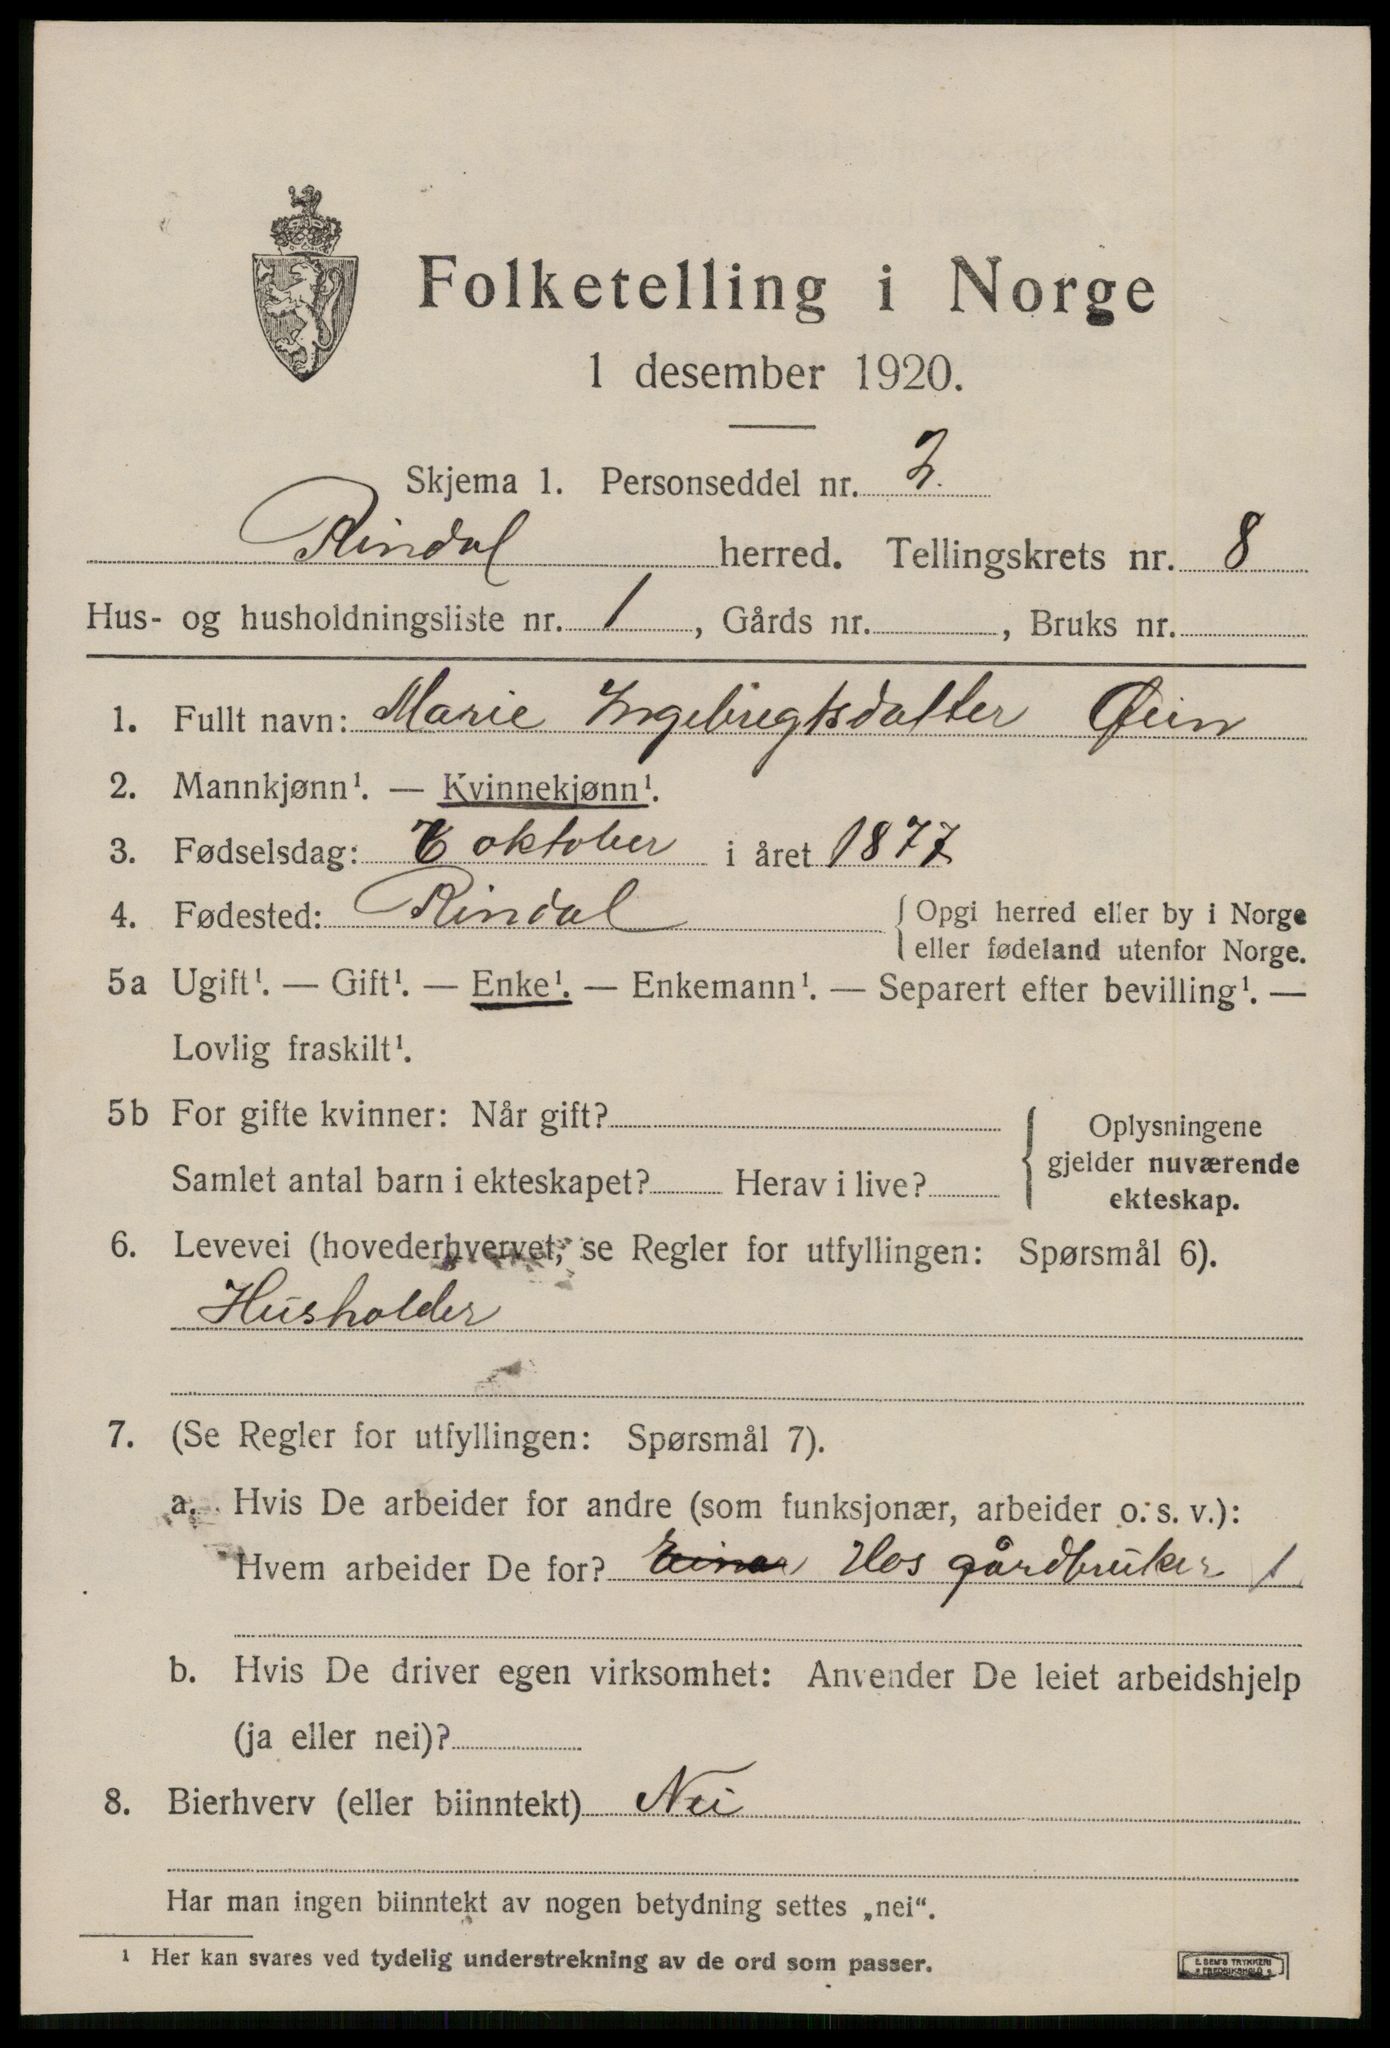 Folketelling i Norge
1 desember 1920.
Skjema 1. Personseddel nr. 2.
Rindal herred. Tellingskrets nr. 8
Hus- og husholdningsliste nr. 1, Gårds nr. , Bruks nr.
1. Fullt navn: Marie Ingebrigtsdatter Øien
2. Mannkjønn¹. — Kvinnekjønn¹.
3. Fødselsdag: oktober i året 1877
4. Fødested: Rindal { Opgi herred eller by i Norge
eller fødeland utenfor Norge.
5a Ugift¹. — Gift¹. — Enke¹. — Enkemann¹. — Separert efter bevilling¹. —
Lovlig fraskilt¹.
5b For gifte kvinner: Når gift? { Oplysningene
gjelder nuværende
Samlet antal barn i ekteskapet? Herav i live?
ekteskap.
6. Levevei (hovederhvervet, se Regler for utfyllingen: Spørsmål 6).
Husholder
7. (Se Regler for utfyllingen: Spørsmål 7).
a. Hvis De arbeider for andre (som funksjonær, arbeider o. s. v.):
Hvem arbeider De for? Einar Hos gårdbruker 1
b. Hvis De driver egen virksomhet: Anvender De leiet arbeidshjelp
(ja eller nei)?
8. Bierhverv (eller biinntekt) Nei
Har man ingen biinntekt av nogen betydning settes „nei“.
¹ Her kan svares ved tydelig understrekning av de ord som passer.
E. SEM'S TRYKKERI
FREDRIKSHALD